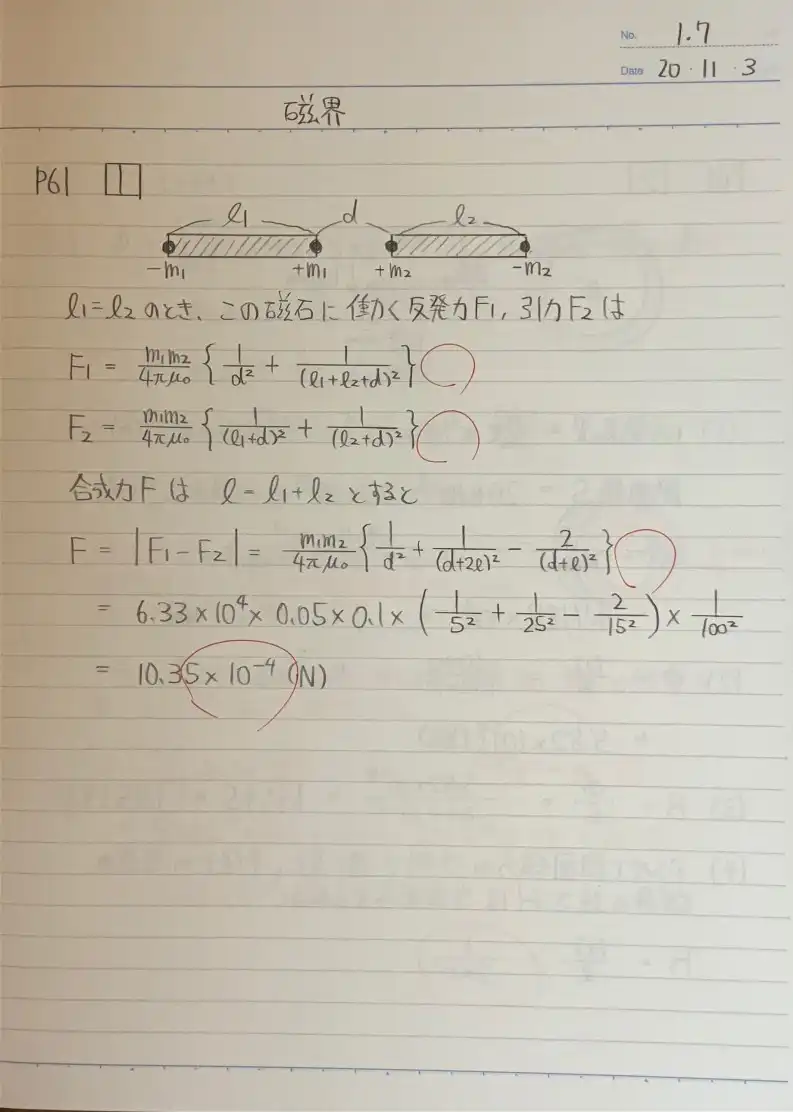 No. 1.7
Date 20・11・3
磁界
P61 1
l₁ d l₂
-m₁ +m₁ +m₂ -m₂
l₁=l₂ のとき、この磁石に働く反発力F₁, 引力F₂は
F₁ = m₁m₂/4πμ₀ { 1/d² + 1/(l₁+l₂+d)² }
F₂ = m₁m₂/4πμ₀ { 1/(l₁+d)² + 1/(l₂+d)² }
合成力Fは l = l₁+l₂ とすると
F = |F₁-F₂| = m₁m₂/4πμ₀ { 1/d² + 1/(d+2l)² - 2/(d+l)² }
= 6.33×10⁴× 0.05×0.1× ( 1/5² + 1/25² - 2/15² ) × 1/100²
= 10.35×10⁻⁴ (N)